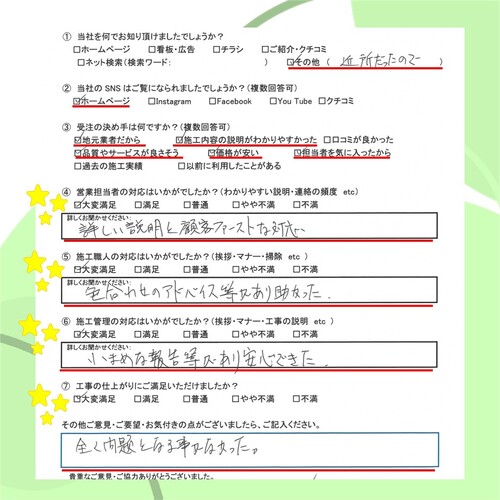 ① 当社を何でお知り頂けましたでしょうか？
☐ホームページ ☐看板・広告 ☐チラシ ☐ご紹介・クチコミ
☐ネット検索（検索ワード: ） ☑その他（ 近所だったので
② 当社の SNS はご覧になられましたでしょうか？（複数回答可）
☑ホームページ ☐Instagram ☐Facebook ☐You Tube ☐クチコミ
③ 受注の決め手は何ですか？（複数回答可）
☑地元業者だから ☑施工内容の説明がわかりやすかった ☐口コミが良かった
☑品質やサービスが良さそう ☑価格が安い ☑担当者を気に入ったから
☐過去の施工実績 ☐以前に利用したことがある
④ 営業担当者の対応はいかがでしたか？（わかりやすい説明・連絡の頻度 etc）
☑大変満足 ☐満足 ☐普通 ☐やや不満 ☐不満
詳しくお聞かせください:
詳しい説明と顧客ファーストな対応
⑤ 施工職人の対応はいかがでしたか？（挨拶・マナー・掃除 etc ）
☑大変満足 ☐満足 ☐普通 ☐やや不満 ☐不満
詳しくお聞かせください:
色合わせのアドバイス等もあり助かった.
⑥ 施工管理の対応はいかがでしたか？（挨拶・マナー・工事の説明 etc ）
☑大変満足 ☐満足 ☐普通 ☐やや不満 ☐不満
詳しくお聞かせください:
小まめな報告等もあり安心できた.
⑦ 工事の仕上がりにご満足いただけましたか？
☑大変満足 ☐満足 ☐普通 ☐やや不満 ☐不満
その他ご意見・ご要望・お気付きの点がございましたら、ご記入ください。
全く問題となる事はなかった。
貴重なご意見・ご協力ありがとうございました。